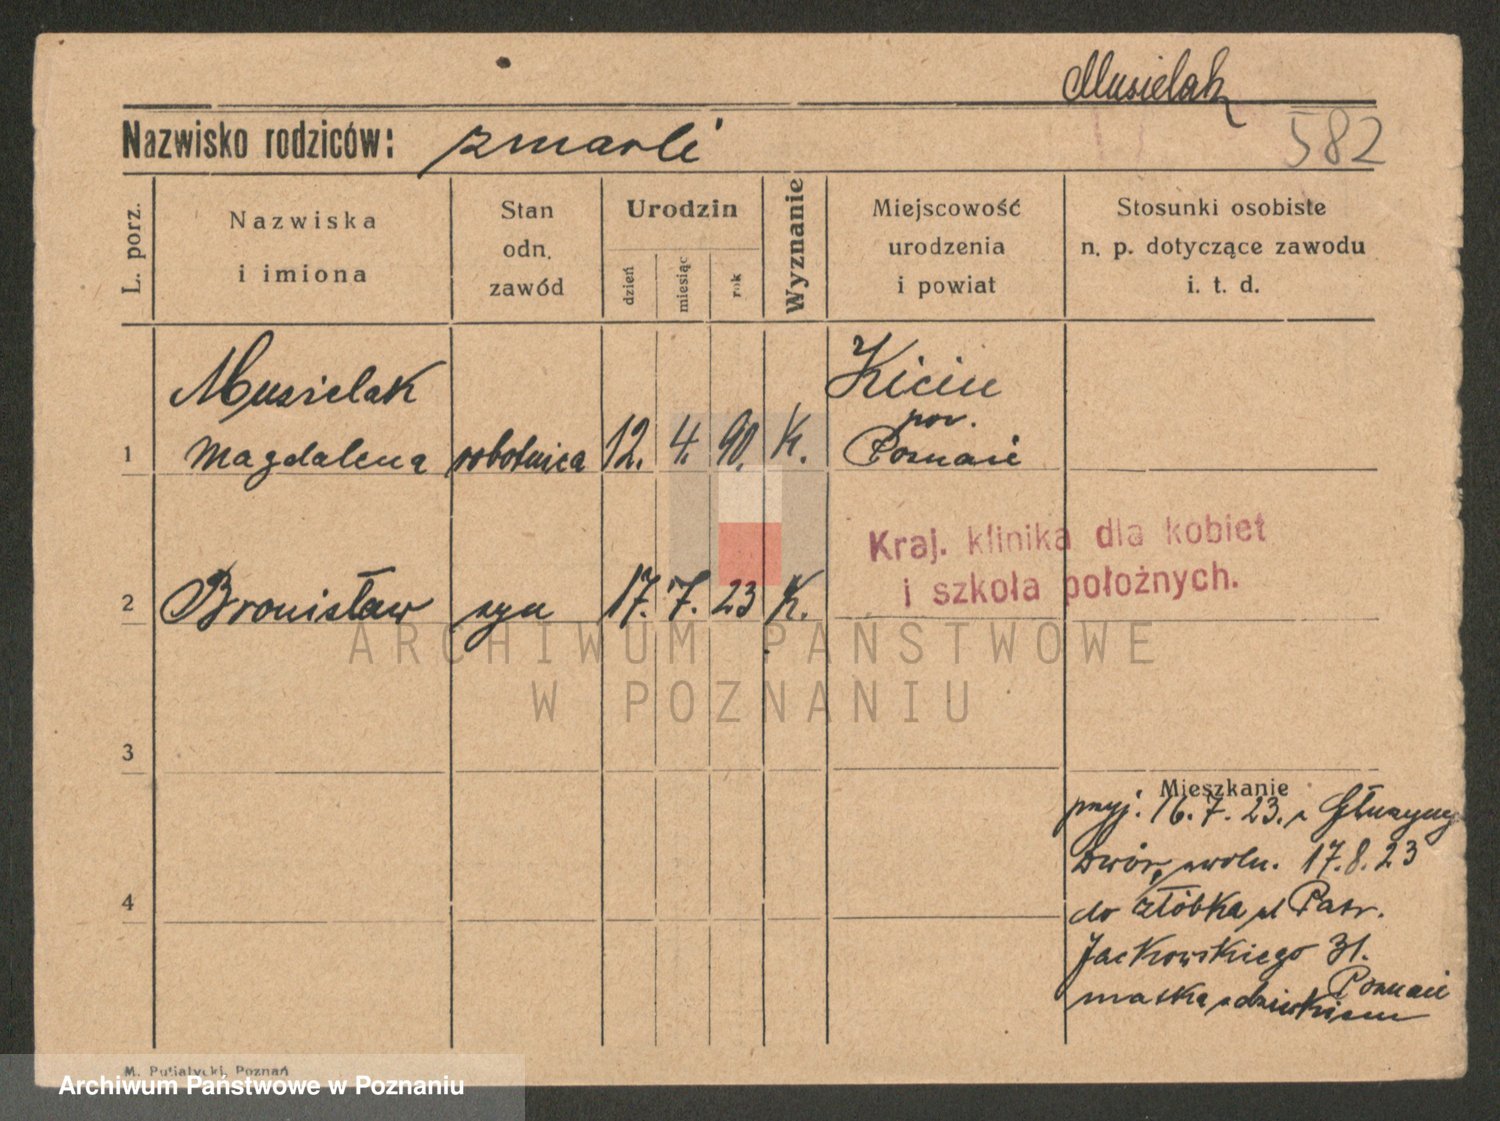 Musielak
582
Nazwisko rodziców: zmarli
L. porz.
Nazwiska
i imiona
Stan
odn.
zawód
Urodzin
dzień
miesiąc
rok
Wyznanie
Miejscowość
urodzenia
i powiat
Stosunki osobiste
n. p. dotyczące zawodu
i. t. d.
Musielak Kicin
pow.
1 Magdalena robotnica 12. 4. 90. K. Poznań
Kraj. klinika dla kobiet
i szkoła położnych.
2 Bronisław syn 17. 7. 23 K.
ARCHIWUM PAŃSTWOWE
W POZNANIU
3
Mieszkanie
przyj. 16. 7. 23. z Głuszyny
Dwór, zwoln. 17. 8. 23
4
do żłóbka ul Patr.
Jackowskiego 31.
Poznań
matka z dzieckiem
M. Putiatycki, Poznań
Archiwum Państwowe w Poznaniu